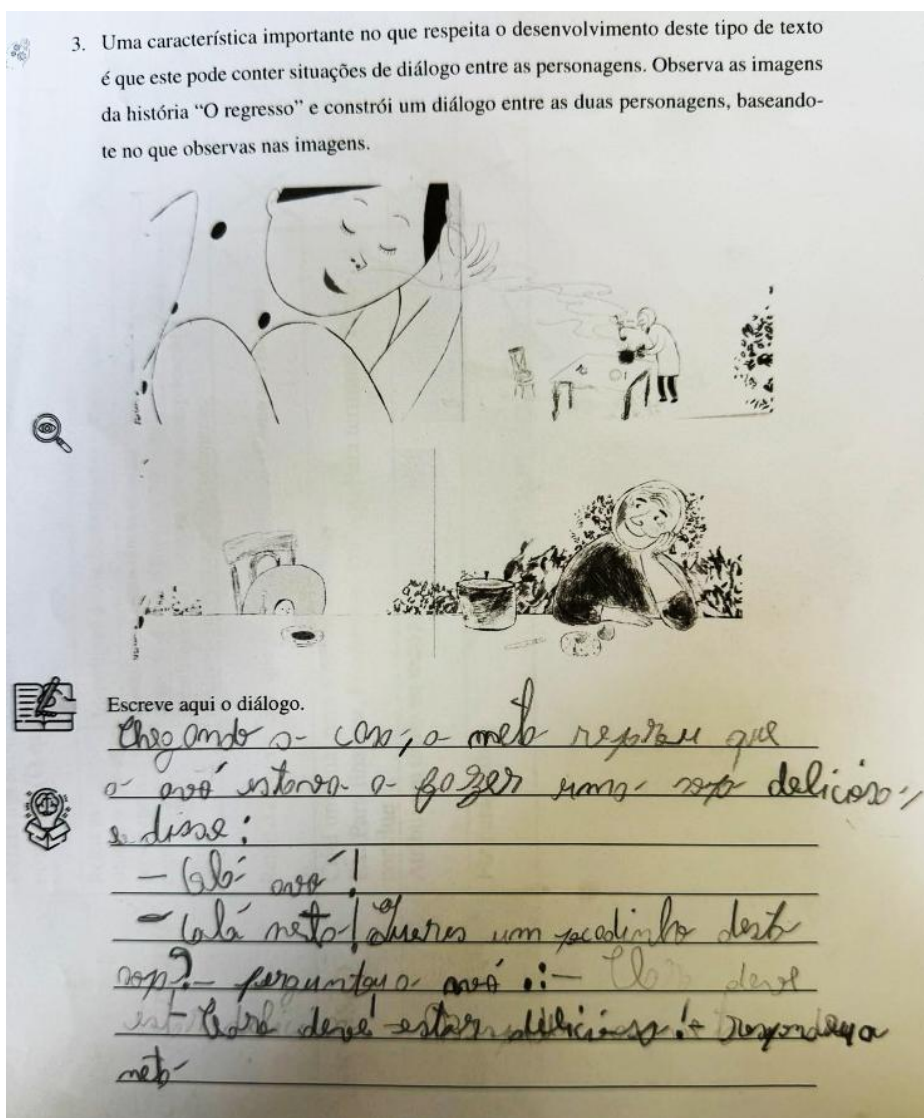 3. Uma característica importante no que respeita o desenvolvimento deste tipo de texto
é que este pode conter situações de diálogo entre as personagens. Observa as imagens
da história “O regresso” e constrói um diálogo entre as duas personagens, baseando-
te no que observas nas imagens.
Escreve aqui o diálogo.
Chegando a casa, a neta reparou que
a avó estava a fazer uma sopa deliciosa,
e disse:
- Olá avó!
- Olá neta! Queres um pedinho desta
sop? - perguntou a avó :- Claro deve
- Claro deve estar deliciosa! - respondeu a
neta